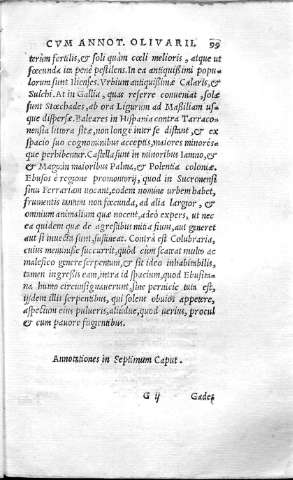 CVM ANNOT. OLIVARII. 99
terùm fertilis,& soli quàm cœli melioris, atque ut
fœcunda ita penè pestilens. In ea antiquissimi popu-
lorum sunt Ilienses. Vrbium antiquissimæ Calaris,&
Sulchi. At in Gallia, quas referre conueniat, solæ
sunt Stœchades, ab ora Ligurum ad Massiliam us-
que dispersæ. Baleares in Hispania contra Tarraco-
nensia littora sitæ, non longè inter se distant, & ex
spacio suo cognominibus acceptis, maiores minorés-
que perhibentur. Castella sunt in minoribus Iamno,&
& Magum: maioribus Palma, & Polentia coloniæ.
Ebusos è regione promontorij, quod in Sucronensi
sinu Ferrariam uocant, eodem nomine urbem habet,
frumentis tantum non fœcunda, ad alia largior, &
omnium animalium quæ nocent, adeò expers, ut nec
ea quidem quæ de agrestibus mitia sium, aut generet
aut si inuecta sunt, sustineat. Contrà est Colubraria,
cuius meminisse succurrit, quòd cùm scateat multo ac
malefico genere serpentum, & sit ideo inhabitabilis,
tamen ingressis eam, intra id spacium, quod Ebusita-
na humo circumsignauerunt, sine pernicie tuta est,
ijsdem illis serpentibus, qui solent obuios appetere,
aspectum eius pulueris, aliudue, quod uerius, procul
& cum pauore fugientibus.
Annotationes in Septimum Caput.
G ij Gades